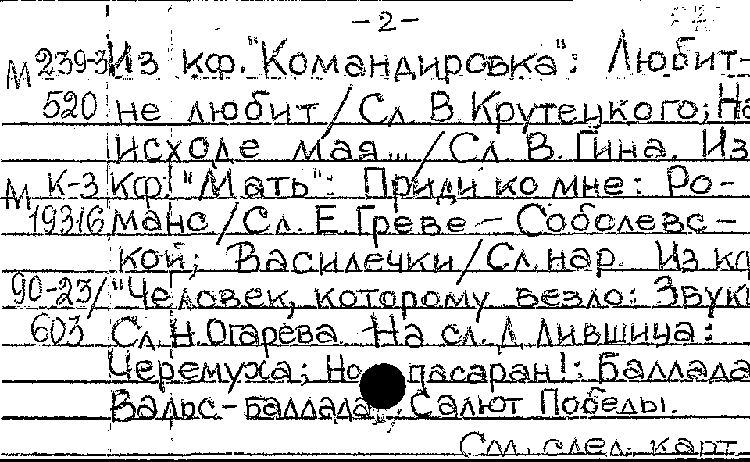 -2-
М 239-3 Из кф. "Командировка": Любит-
520 не любит / Сл. В. Крутецкого; На
исходе мая... / Сл. В. Гина. Из
М К-3 кф. "Мать": Приди ко мне: Ро-
19316 манс / Сл. Е. Греве - Соболевс-
кой; Василечки / Сл. нар. Из кф
90-23/ "Человек, которому везло: Звуки
603 Сл. Н. Огарева. На сл. Д. Лившица:
Черемуха; Но пасаран!: Баллада
Вальс-баллада; Салют Победы.
См. след. карт.